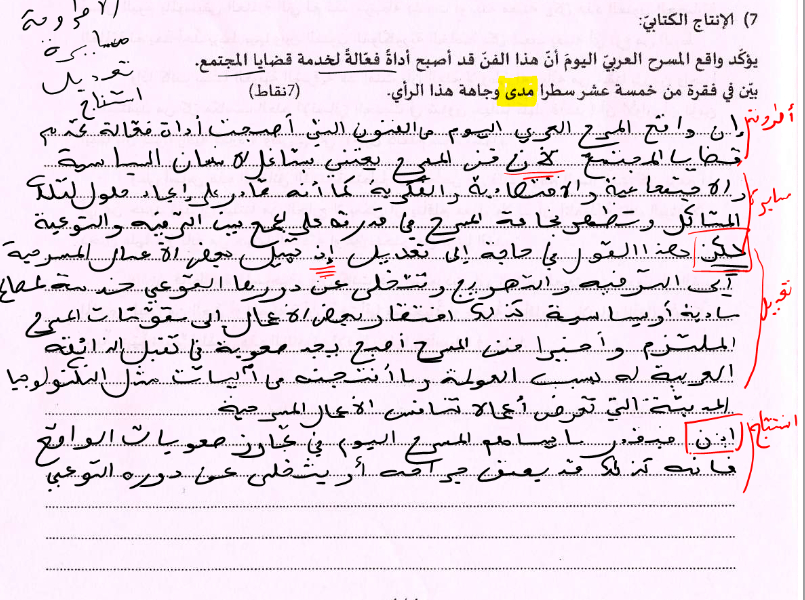 الأطروحة
مسايرة
تعديل
استنتاج
7) الإنتاج الكتابيّ:
يؤكّد واقع المسرح العربيّ اليومَ أنّ هذا الفنّ قد أصبح أداةً فعّالةً لخدمة قضايا المجتمع.
بيّن في فقرة من خمسة عشر سطرا مدى وجاهة هذا الرأي. (7نقاط)
أطروحة
إن واقع المسرح العربي اليوم من الفنون التي أصبحت أداة فعالة تخدم
قضايا المجتمع لأن فن المسرح يعتني بمشاغل الإنسان السياسية
مسايرة
والاجتماعية والاقتصادية والفكرية كما أنه قادر على إيجاد حلول لتلك
المشاكل وتظهر نجاعة المسرح في قدرته على الجمع بين الترفيه والتوعية
لكن هذا القول في حاجة إلى تعديل إذ تميل بعض الأعمال المسرحية
تعديل
إلى الترفيه والتهريج وتتخلى عن دورها التوعوي خدمة لمصالح
مادية أو سياسية كذلك افتقار بعض الأعمال إلى مقومات المسرح
الملتزم وأخيرا فن المسرح أصبح يجد صعوبة في تقبل الذائقة
العربية له بسبب العولمة وما أنتجته من آليات مثل التكنولوجيا
الحديثة التي تعرض أعمالا تنافس الأعمال المسرحية
استنتاج
إذن فبقدر ما يساهم المسرح اليوم في تجاوز صعوبات الواقع
فإنه كذلك قد يعمق جراحه أو يتخلى عن دوره التوعوي